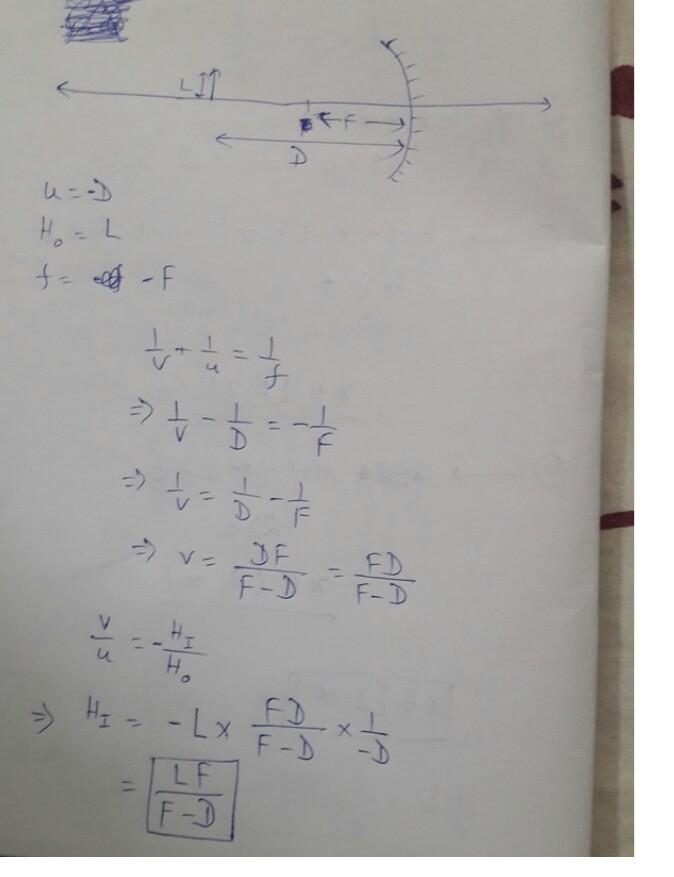 L
F
D
u = -D
H₀ = L
f = -F
1/v + 1/u = 1/f
⇒ 1/v - 1/D = -1/F
⇒ 1/v = 1/D - 1/F
⇒ v = DF/(F-D) = FD/(F-D)
v/u = -H_I/H₀
⇒ H_I = -L × FD/(F-D) × 1/-D
= LF/(F-D)